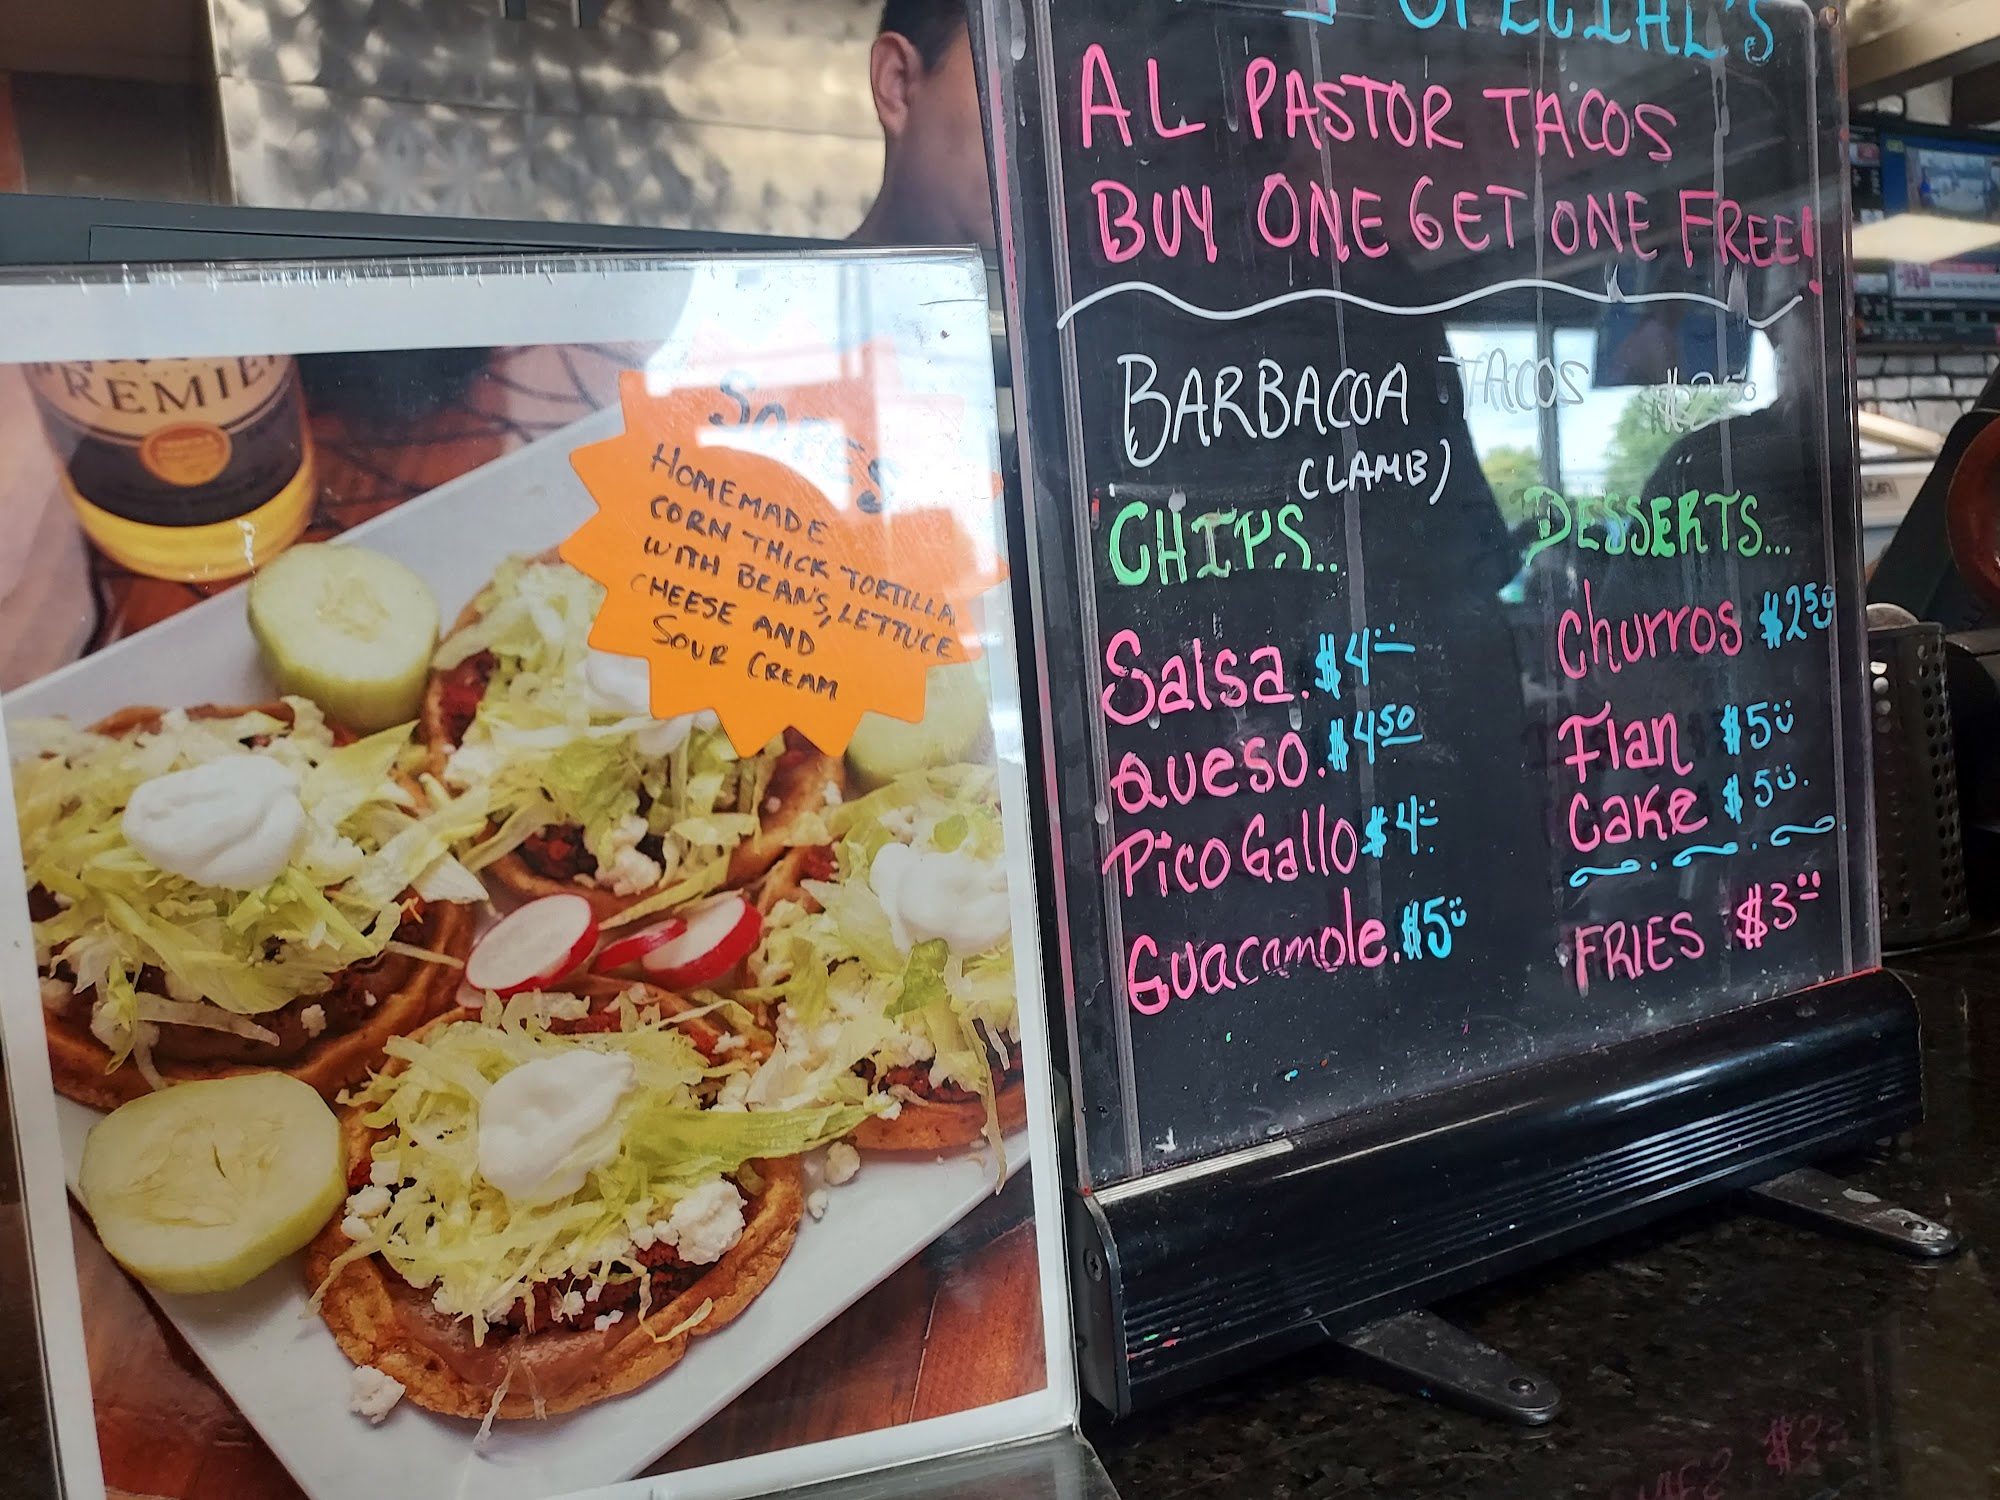 SPECIAL'S
AL PASTOR TACOS
BUY ONE GET ONE FREE!
BARBACOA TACOS $2.50
(LAMB)
CHIPS...
Salsa. $4
Queso. $4.50
Pico Gallo $4
Guacamole. $5
DESSERTS...
Churros $2.50
Flan $5
Cake $5
FRIES $3
SOPES
HOMEMADE
CORN THICK TORTILLA
WITH BEANS, LETTUCE
CHEESE AND
SOUR CREAM